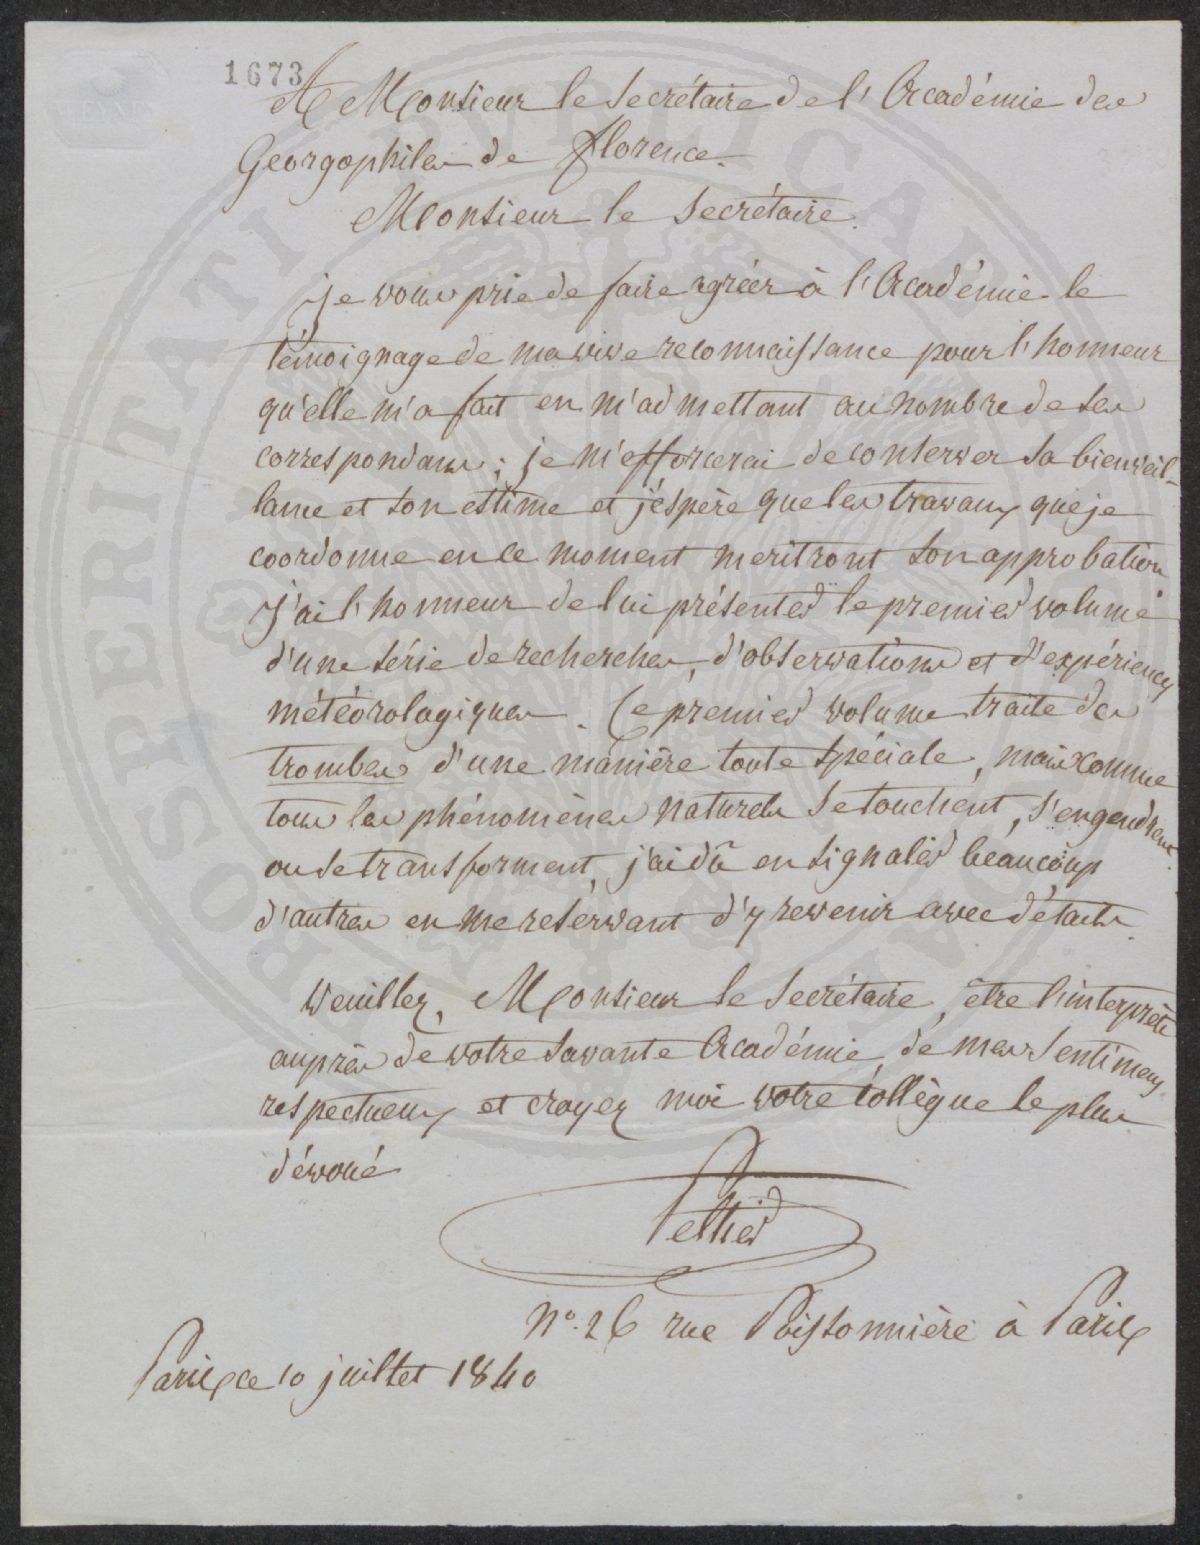 1673
A Monsieur le Secrétaire de l'Académie des
Georgophiles de Florence.
Monsieur le Secrétaire.
je vous prie de faire agréér à l'Académie le
témoignage de ma vive reconnaissance pour l'honneur
qu'elle m'a fait en m'admettant au nombre de ses
correspondans ; je m'efforcerai de conserver sa bienveil-
lance et son estime et j'éspère que les travaux que je
coordonne en ce moment meritront son approbation
J'ai l'honneur de lui présenter le premier volume
d'une série de recherches, d'observations et d'expériences
météorologiques. Ce premier volume traite des
trombes d'une manière toute spéciale, mais comme
tous les phénomènes naturels se touchent, s'engendrent
ou se transforment, j'ai dû en signaler beaucoup
d'autres en me reservant d'y revenir avec détails.
Veuillez, Monsieur le Secrétaire, être l'interprète
auprès de votre savante Académie, de mes sentimens
respectueux et croyez moi votre collègue le plus
dévoué
Peltier
N°. 26 rue Poissonnière à Paris
Paris ce 10 juillet 1840
PROSPERITATI PUBLICAE